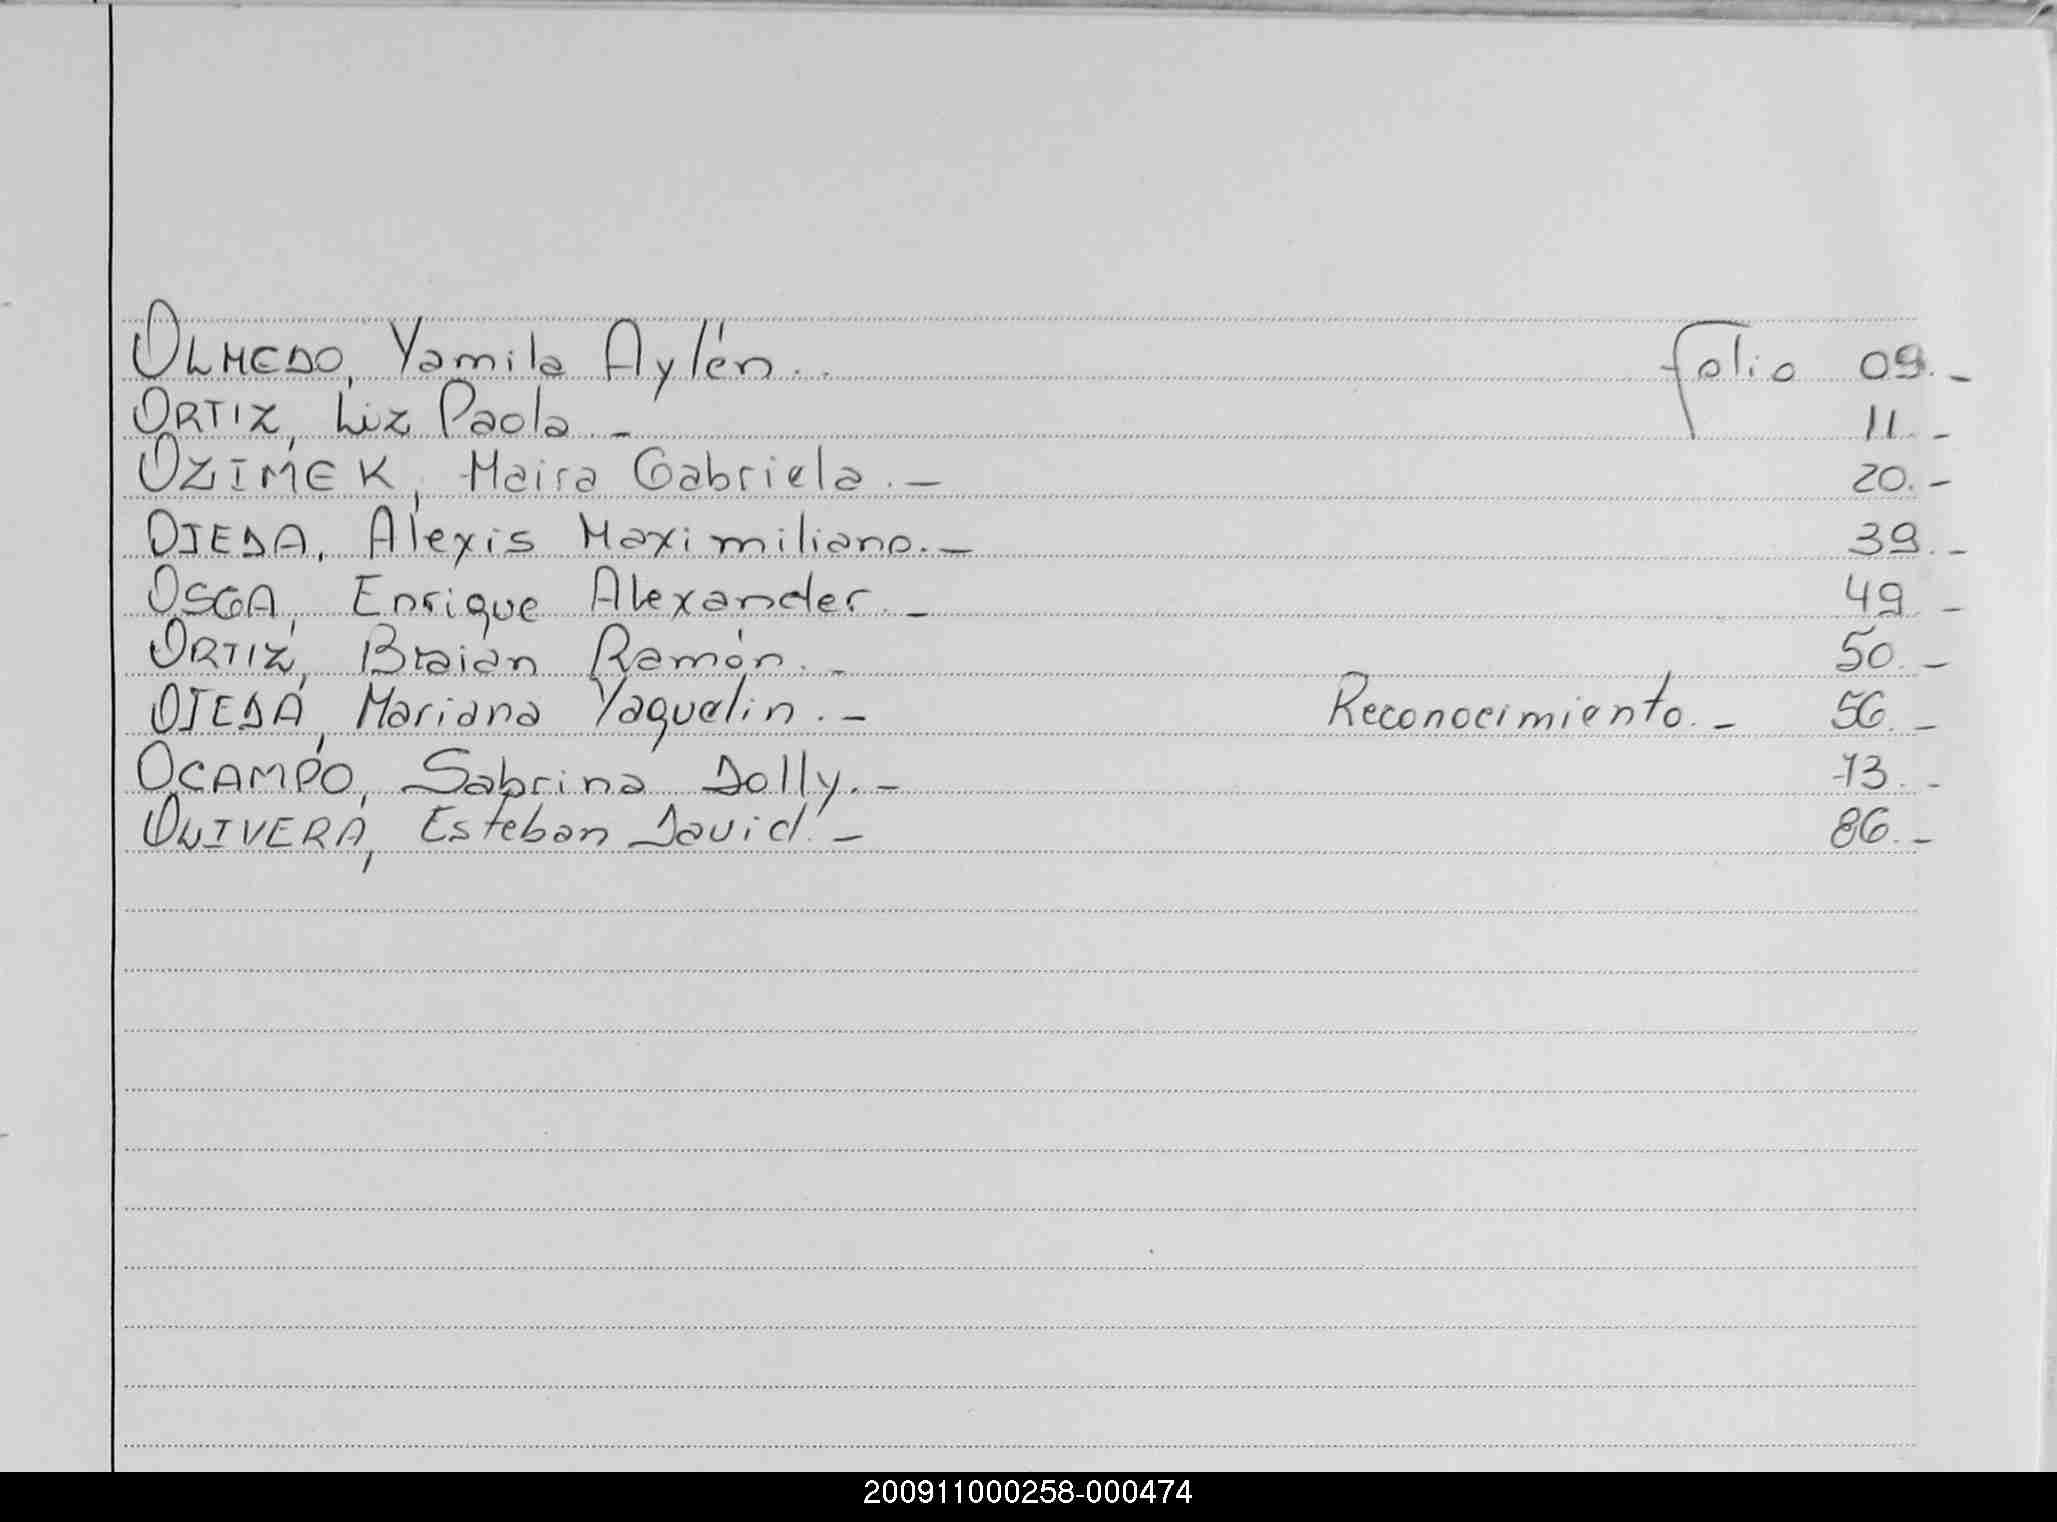 OLMEDO, Yamila Aylén.. folio 09.-
ORTIZ, Liz Paola.- 11.-
OZIMEK, Maira Gabriela.- 20.-
OJEDA, Alexis Maximiliano.- 39.-
OSGA, Enrique Alexander.- 49.-
ORTIZ, Braian Ramón.- 50.-
OJEDA, Mariana Yaquelin.- Reconocimiento.- 56.-
OCAMPO, Sabrina Dolly.- 73.-
OLIVERA, Esteban David.- 86.-
200911000258-000474